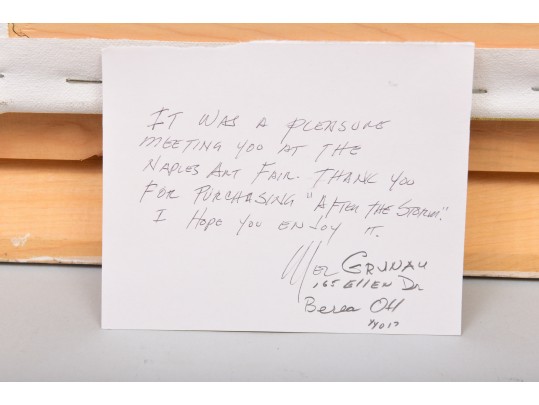 IT WAS A PLEASURE
MEETING YOU AT THE
NAPLES ART FAIR. THANK YOU
FOR PURCHASING "AFTER THE STORM."
I HOPE YOU ENJOY IT.
MEL GRUNAU
165 ELLEN DR
Berea OH
44017